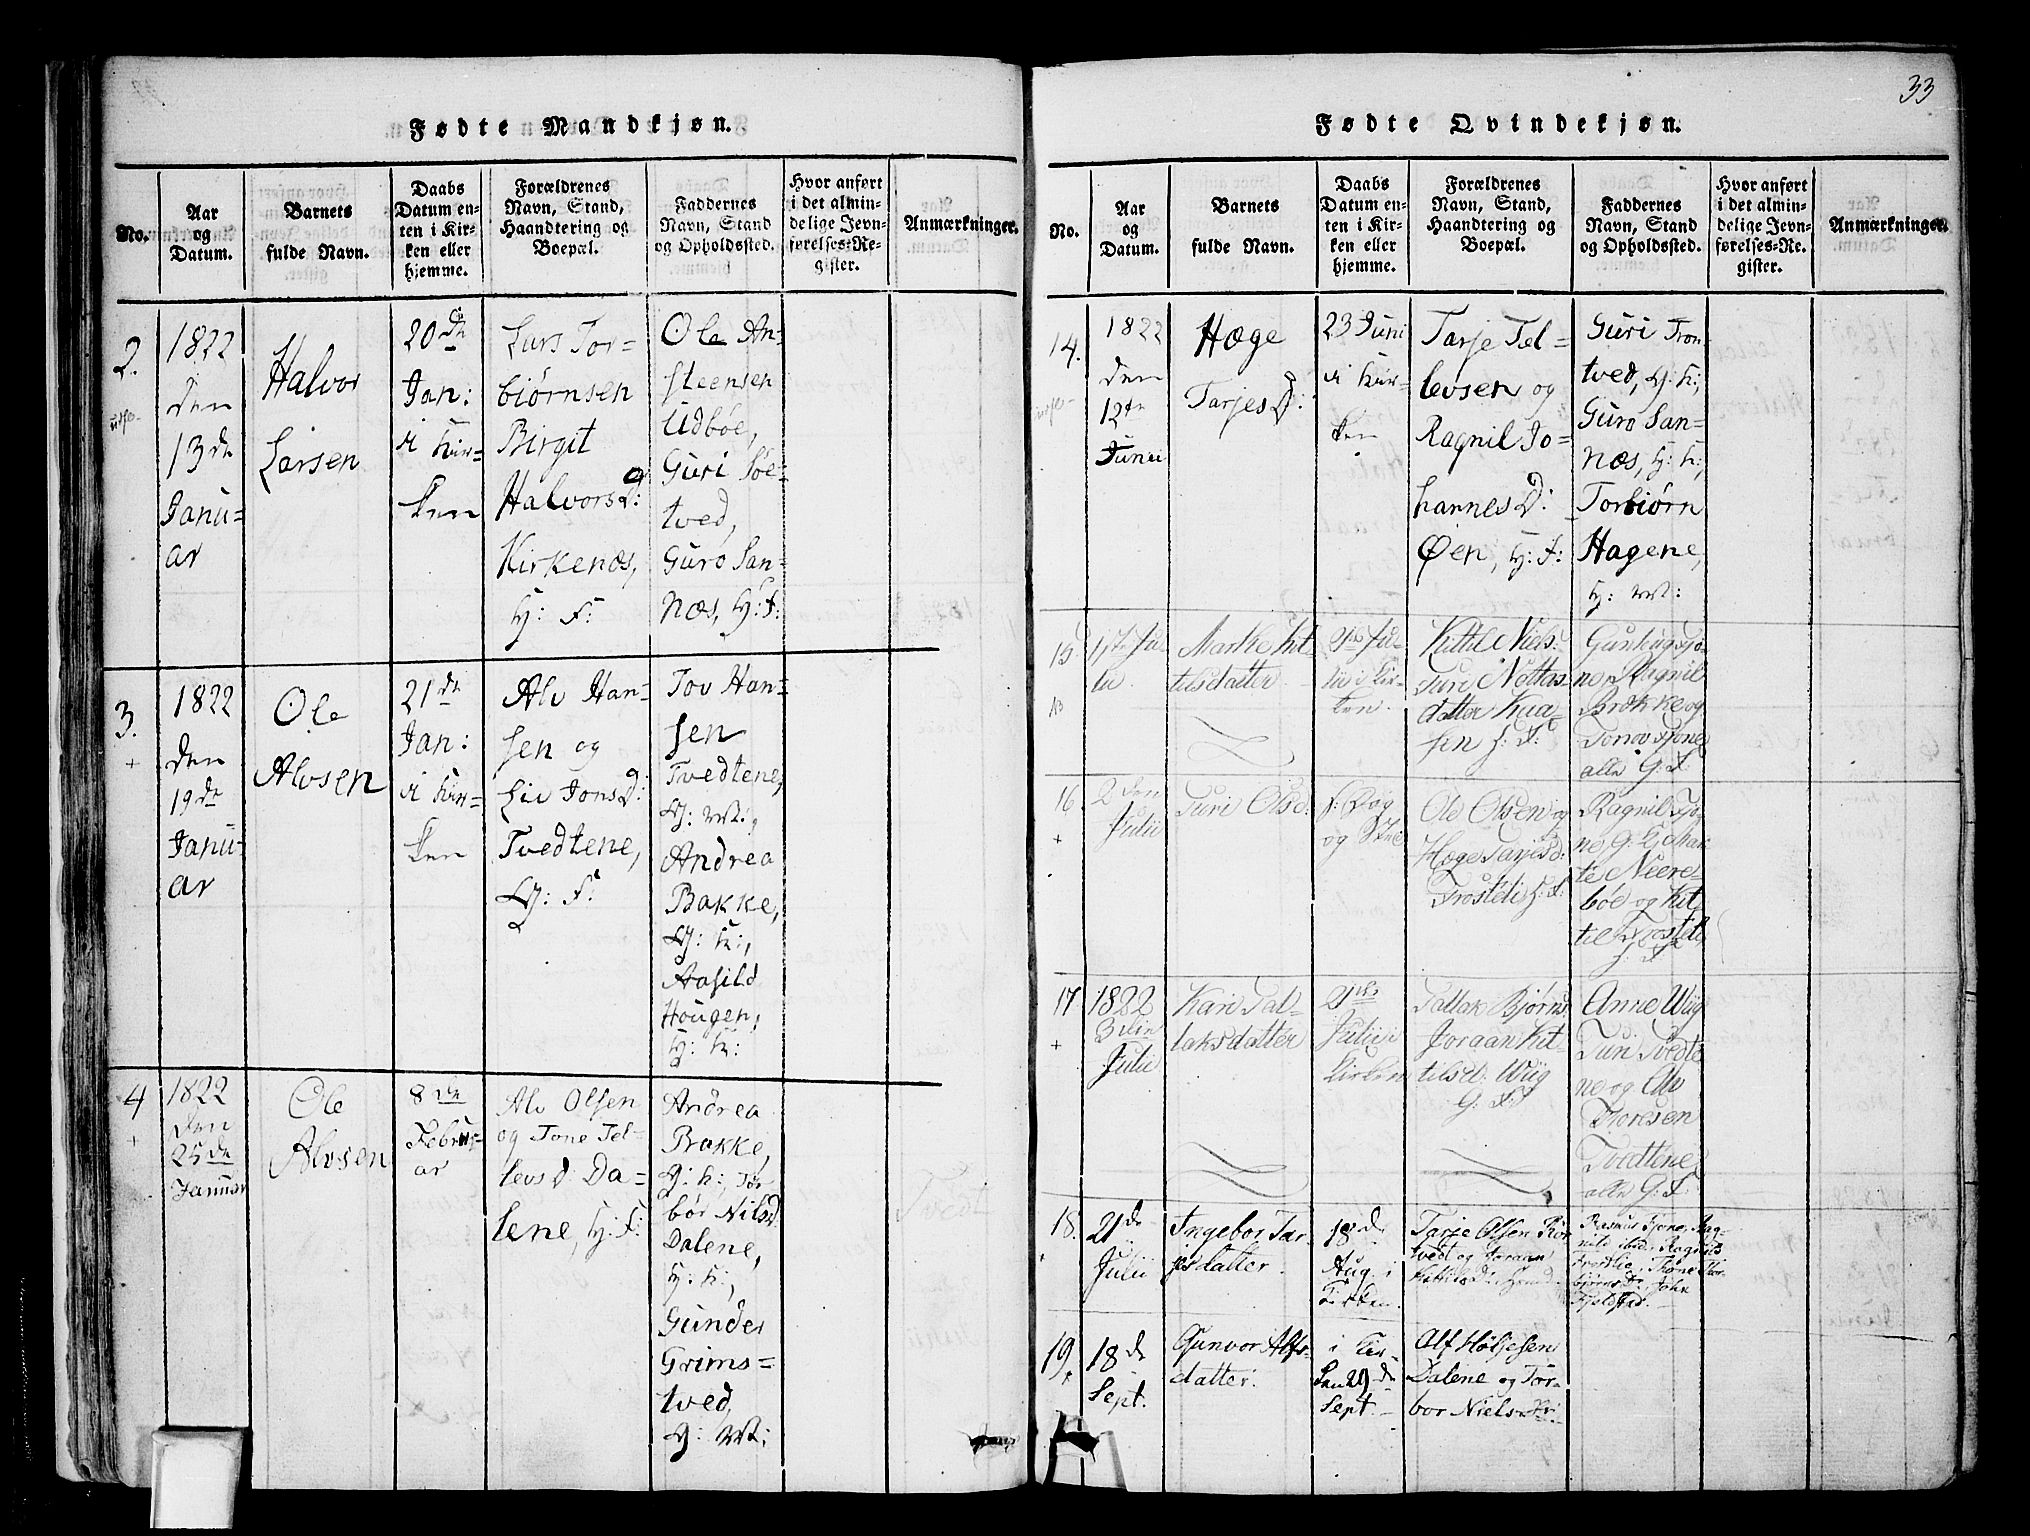 Fødte Mandkjøn.
No.
Aar
og
Datum.
Barnets
fulde Navn.
Daabs
Datum en-
ten i Kir-
ken eller
hjemme.
Forældrenes
Navn, Stand,
Haandtering og
Boepæl.
Faddernes
Navn, Stand
og Opholdssted.
Hvor anført
i det almin-
delige Jevn-
førelses-Re-
gister.
Anmærkninger.
2.
1822
den
13de
Janu-
ar
Halvor
Larsen
20de
Jan:
i Kir-
ken
Lars Tor-
biørnsen
Birgit
HalvorsD:
Kirkenæs,
H: F:
Ole An-
steensen
Udbøe,
Guri Søe-
tved,
Guro San-
næs, H: F:
3.
+
1822
den
19de
Janu-
ar
Ole
Alvsen
21de
Jan:
i Kir-
ken
Alv Han-
sen og
Liv JonsD:
Tvedtene,
H: F:
Tov Han-
sen
Tvedtene,
H: M:,
Andrea
Bakke,
H: K:,
Aasild
Hougen,
H: K:
4
+
1822
den
25de
Januar
Ole
Alvsen
8de
Febru-
ar
Alv Olsen
og Tone Tel-
levsd Da-
lene, H: F:
Andrea
Brakke,
H: K:, Tor-
bør Nilsd
Dalene,
H: K:,
Gunder
Grims-
tved,
H: M:
33
Fødte Qvindekjøn.
No.
Aar
og
Datum.
Barnets
fulde Navn.
Daabs
Datum en-
ten i Kir-
ken eller
hjemme.
Forældrenes
Navn, Stand,
Haandtering og
Boepæl.
Faddernes
Navn, Stand
og Opholdssted.
Hvor anført
i det almin-
delige Jevn-
førelses-Re-
gister.
Anmærkninger.
14.
1822
den
12te
Junii
Hæge
TarjesD:
23 Juni
i Kir-
ken
Tarje Tel-
levsen og
Ragnil Jo-
hannesD:
Øen, H: F:
Guri Tron-
tved, H: K:,
Guro San-
næs, H: K:,
Torbiørn
Hagene,
H: M:
15
1ste Ju-
lii
Marke Kit-
tilsdatter
Ju-
lii i Kir-
ken.
Kittil Niels:
Turi Nottos-
datter Kaa-
sen H: F:
ne, Ragnil
Brøkke og
Tone
alle G: F
16
+
2den
Julii
Turi Olsd:
Ole Olsen og
Hæge Tarjesd:
Trostelie H: F:
Ragnil
ne G: F,
te Niere-
böe og Kit-
til Trosteli
H: F
17
+
1822
3die
Julii
Kari Tal-
laksdatter
Julii i
Kirken
Tallak Bjørns:
Joraan Kit-
tilsd: Wiig
G: F:
Anne Wiig
Turi Tvedte
ne og Alv
Thoresen
Tvedtene
alle G: F
18.
21de
Julii
Ingebor Tar-
jesdatter.
18de
Aug. i
Kirken.
Tarje Olsen
tvedt og Joraan
Rasmus
Ragnild
Trostlie, Tone Thor-
bjørns D: John
19.
+
18de
Sept.
Gunvor Alfs-
datter.
i Kir-
ken 29de
Sept.
Alf Høljesen
Dalene og Tor-
bor Niels